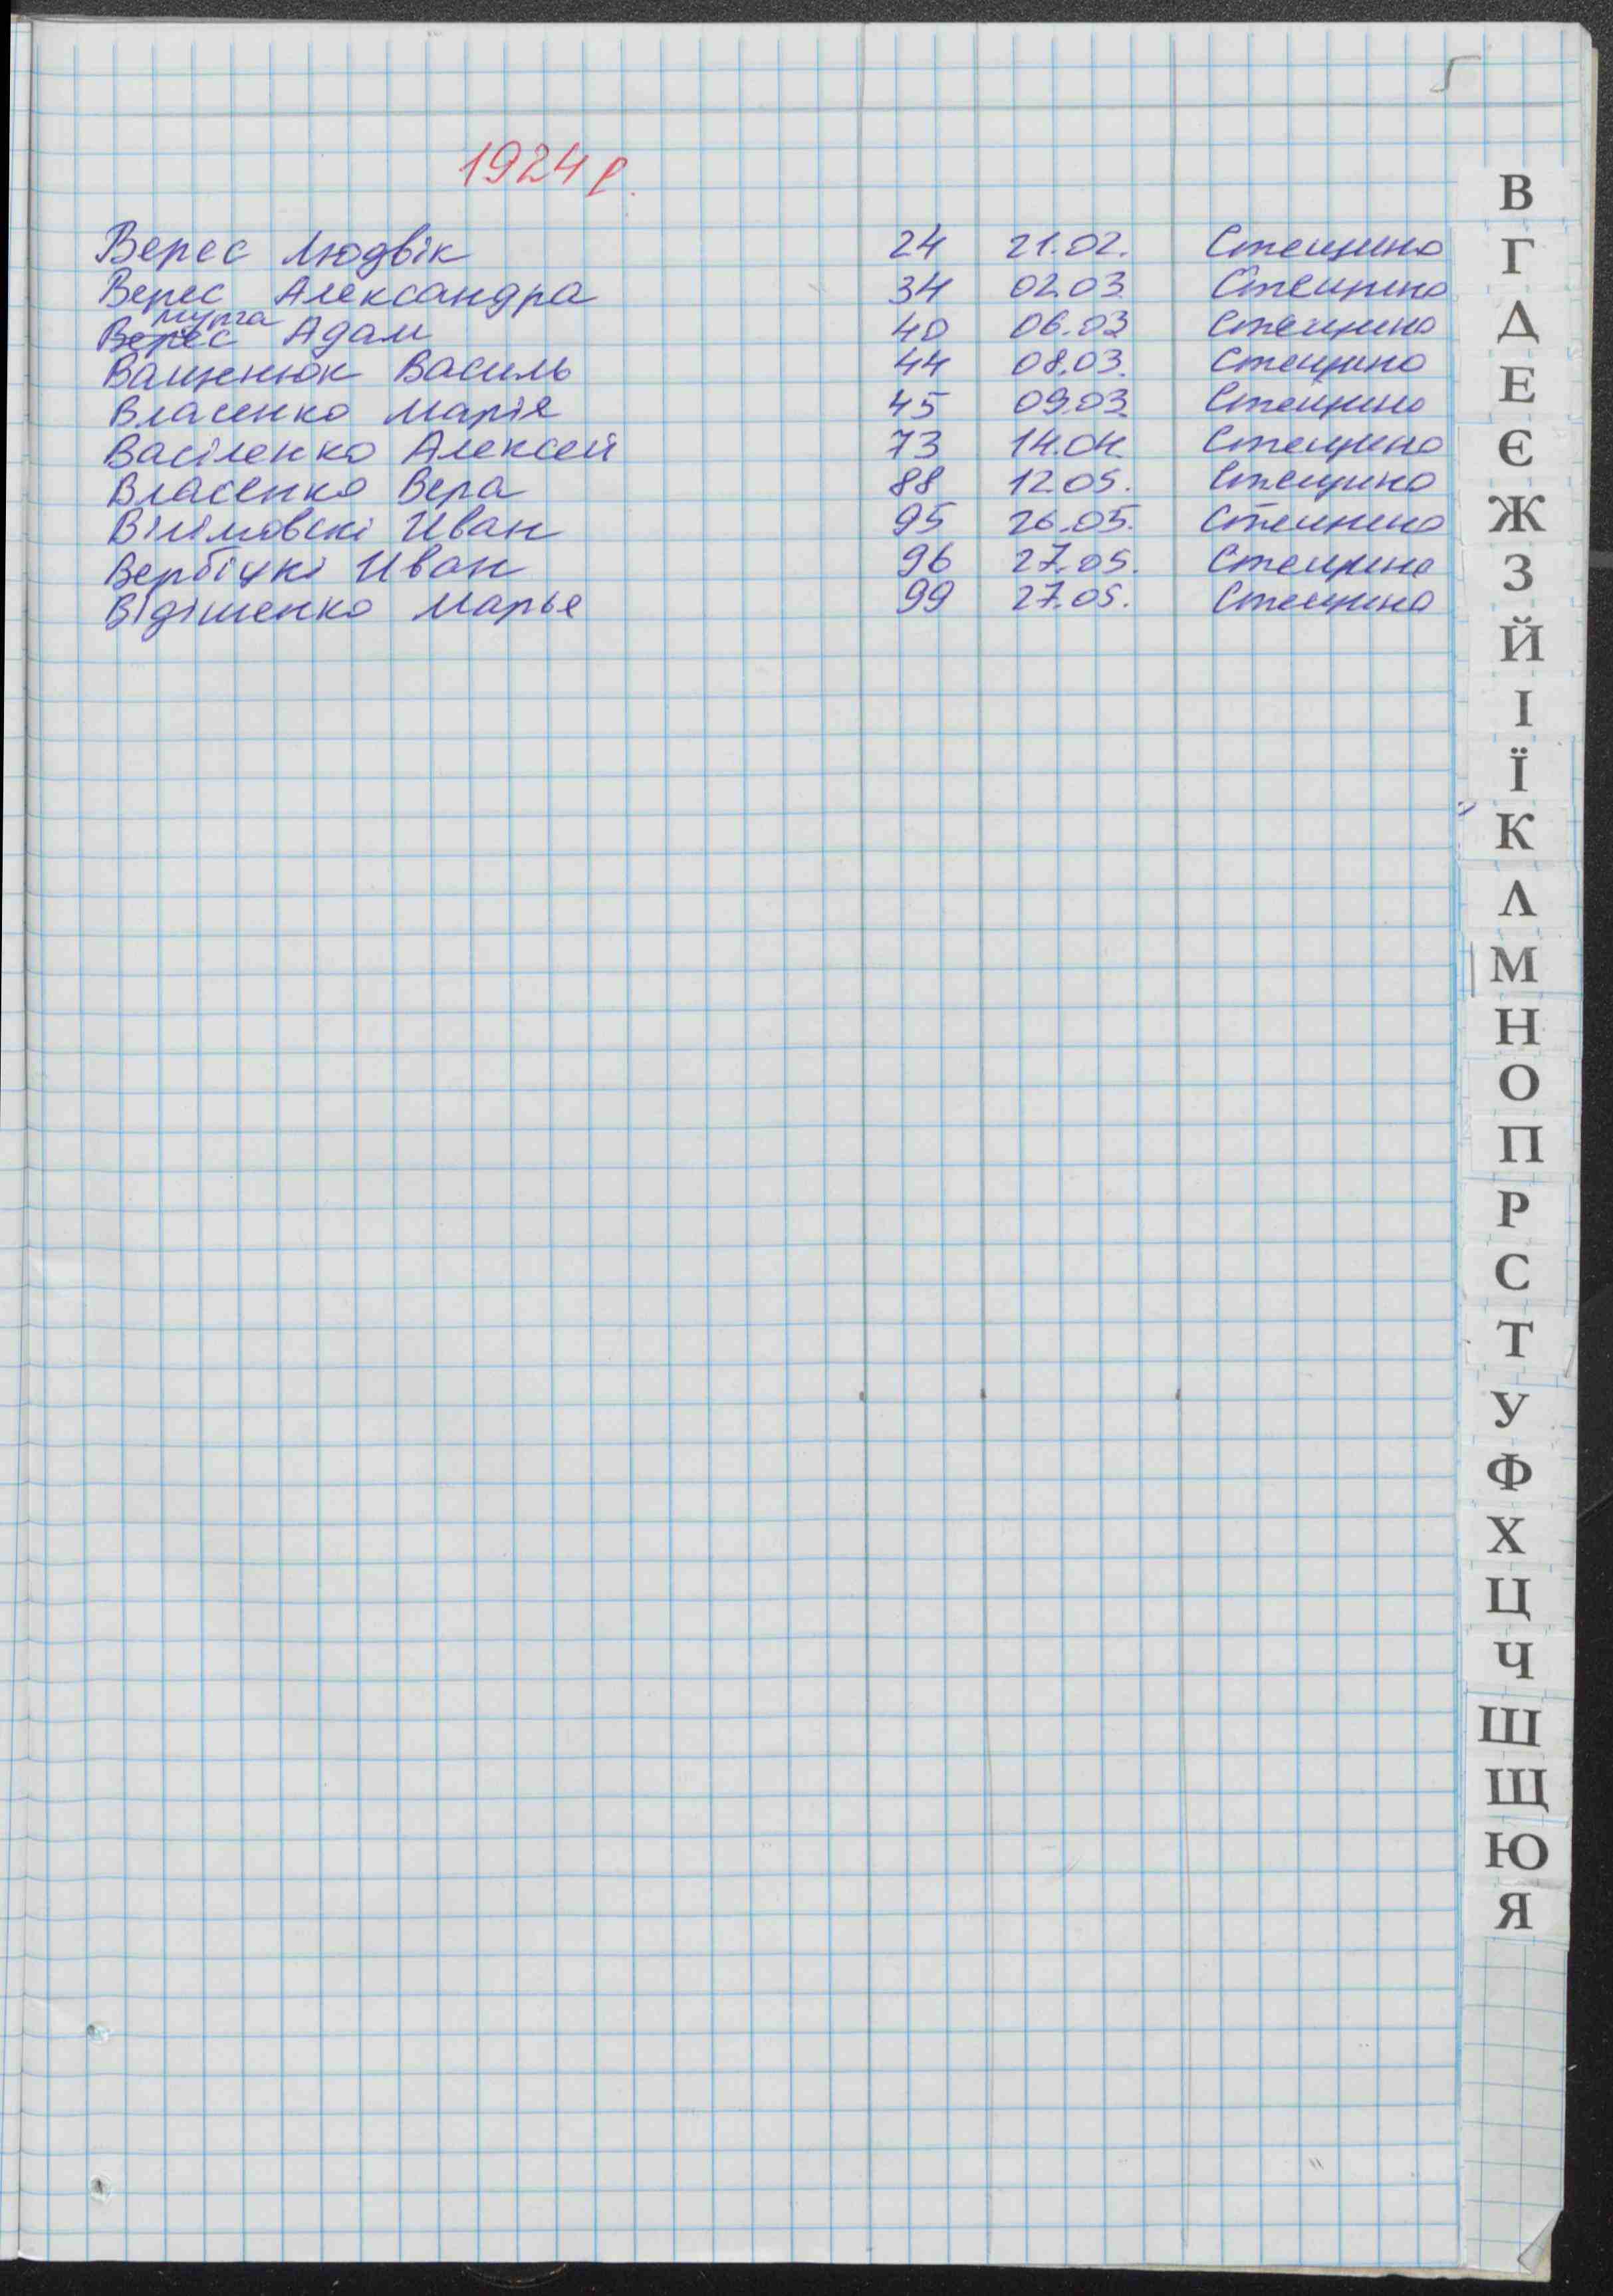 5
1924 р.
Верес Людвік 24 21.02. Стещино
Верес Александра 34 02.03 Стещино
Верес Адам 40 06.03 Стещино
Ващенюк Василь 44 08.03. Стещино
Власенко Марія 45 09.03. Стещино
Васіленко Алексей 73 14.04. Стещино
Власенко Вера 88 12.05. Стещино
Вілімовскі Иван 95 26.05. Стещино
Вербіцкі Иван 96 27.05. Стещино
Відіменко Марья 99 27.05. Стещино
В
Г
Д
Е
Є
Ж
З
Й
І
Ї
К
Л
М
Н
О
П
Р
С
Т
У
Ф
Х
Ц
Ч
Ш
Щ
Ю
Я